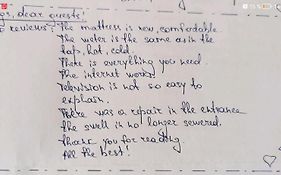 gs, dear guests!
reviews: The mattress is new, comfortable.
The water is the same as in the
tap, hot, cold.
There is everything you need
The internet works!
Television is not so easy to
explain.
There was a repair in the entrance
the smell is no longer sewered.
Thank you for reading
All the best!